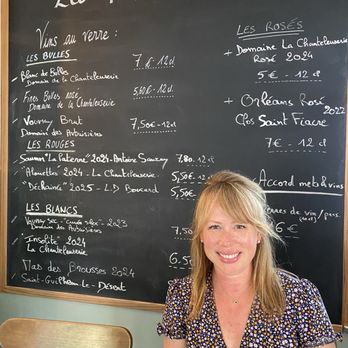 Vins au verre :
LES BULLES
Blanc de Bulles 7.€ - 12cl
Domaine de la Chanteleuserie
Fines Bulles rosé, 5,60€ - 12cl
Domaine de la Chanteleuserie
Vouvray Brut 7,50€ - 12cl
Domaine des Aubuisières
LES ROUGES
"La Paterne" 2024 - Antoine Sanzay 7.80. - 12cl
"Alouettes" 2024 - La Chanteleuserie. 5,50€ - 12cl
"Déchainé" 2025 - LD Bouard 5,50€
LES BLANCS
Vouvray sec - - 2023 7,50€
Domaine des Aubuisières
"Insolite" 2024 5,50€
La Chanteleuserie
Mas des Brousses 2024 6.50
Saint-Guilhem-Le-Désert
LES ROSÉS
+ Domaine La Chanteleuserie
Rosé 2024
5€ - 12cl
+ Orléans Rosé 2022
Clos Saint Fiacre
7€ - 12cl
Accord mets & vins
verres de vin /
€